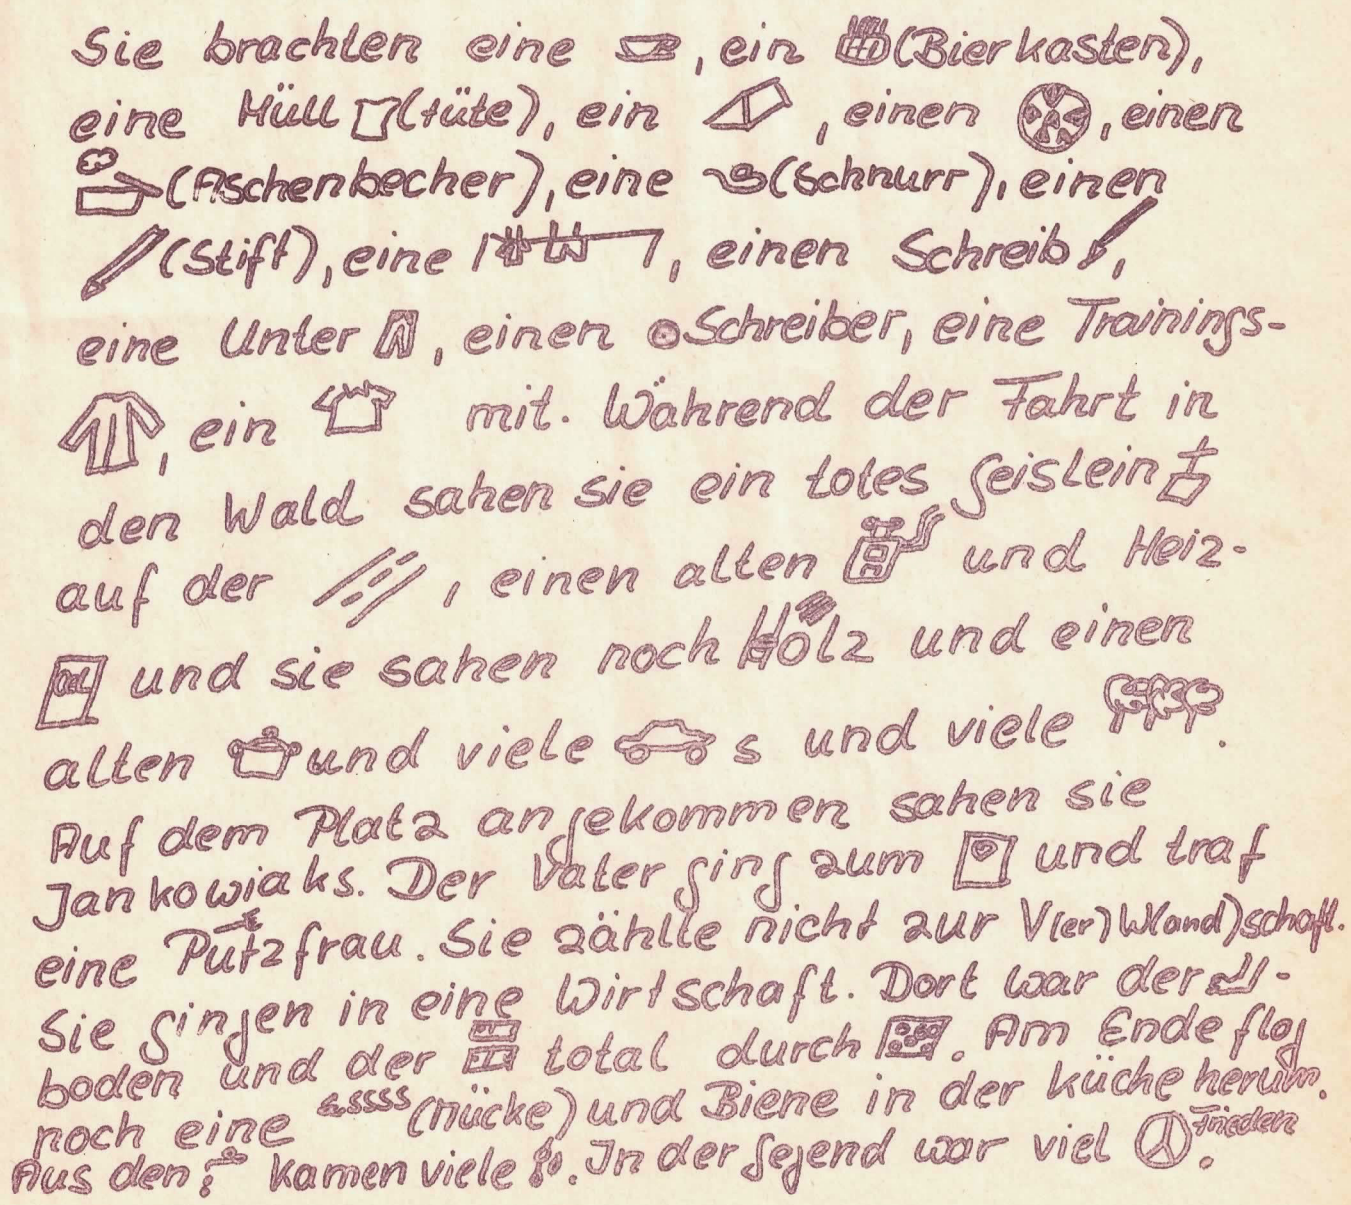 Sie brachten eine , ein (Bierkasten),
eine Müll (tüte), ein , einen , einen
(Aschenbecher), eine (Schnurr), einen
(Stift), eine , einen Schreib ,
eine Unter , einen Schreiber, eine Trainings-
, ein mit. Während der Fahrt in
den Wald sahen sie ein totes Geislein
auf der , einen alten und Heiz-
Oel und sie sahen noch Holz und einen
alten und viele s und viele .
Auf dem Platz angekommen sahen sie
Jankowiaks. Der Vater ging zum und traf
eine Putzfrau. Sie zählte nicht zur V(er)W(and)schaft.
Sie gingen in eine Wirtschaft. Dort war der -
boden und der total durch . Am Ende flog
noch eine ssss (Mücke) und Biene in der Küche herum.
Aus den kamen viele . In der Gegend war viel Frieden .